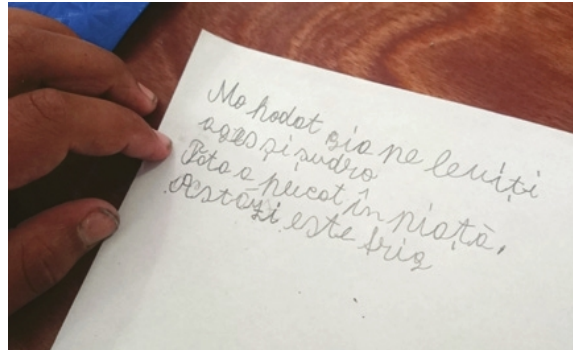 Mo hodat zia pe leuiți
ages și sudro
Fata a plecat în piață.
Astăzi este frig